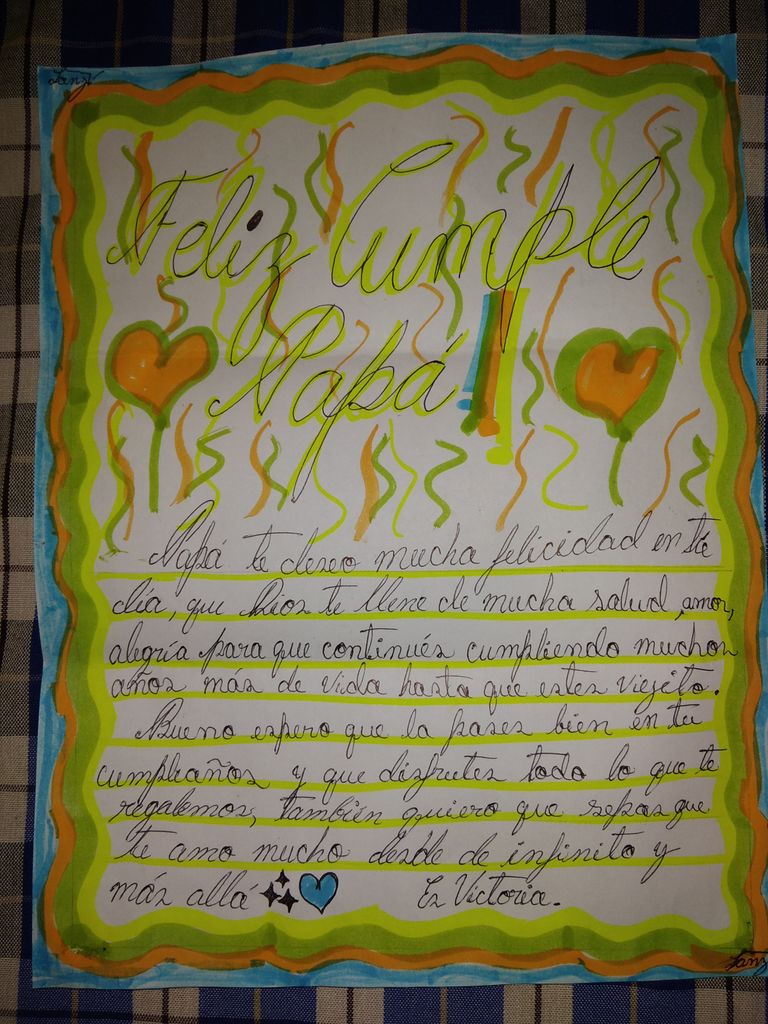 Feliz Cumple
Papá!
Papá te deseo mucha felicidad en tú
día, que Dios te llene de mucha salud, amor,
alegría para que continués cumpliendo muchos
años más de vida hasta que estes viejito.
Bueno espero que la pases bien en tu
cumpleaños y que disfrutes todo lo que te
regalemos, también quiero que sepas que
te amo mucho desde de infinito y
más allá
Ez Victoria.